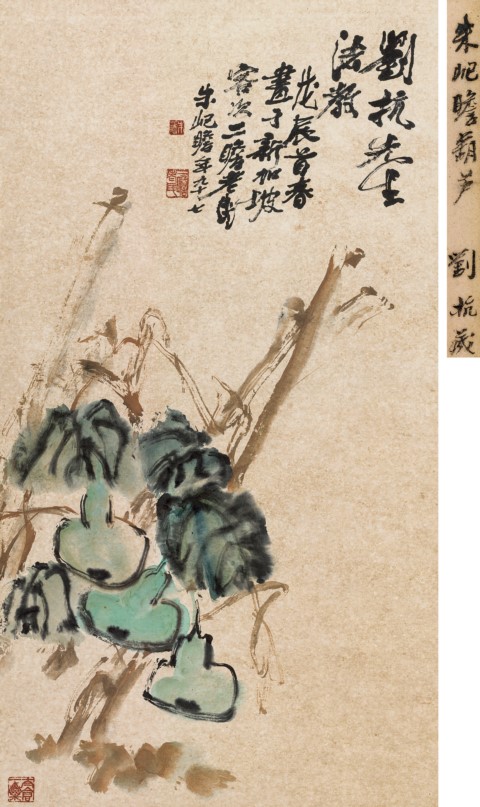 劉抗先生
法教
戊辰首春
畫于新加坡
客次二瞻老民
朱屺瞻年九十七
朱屺瞻葫芦
劉抗藏